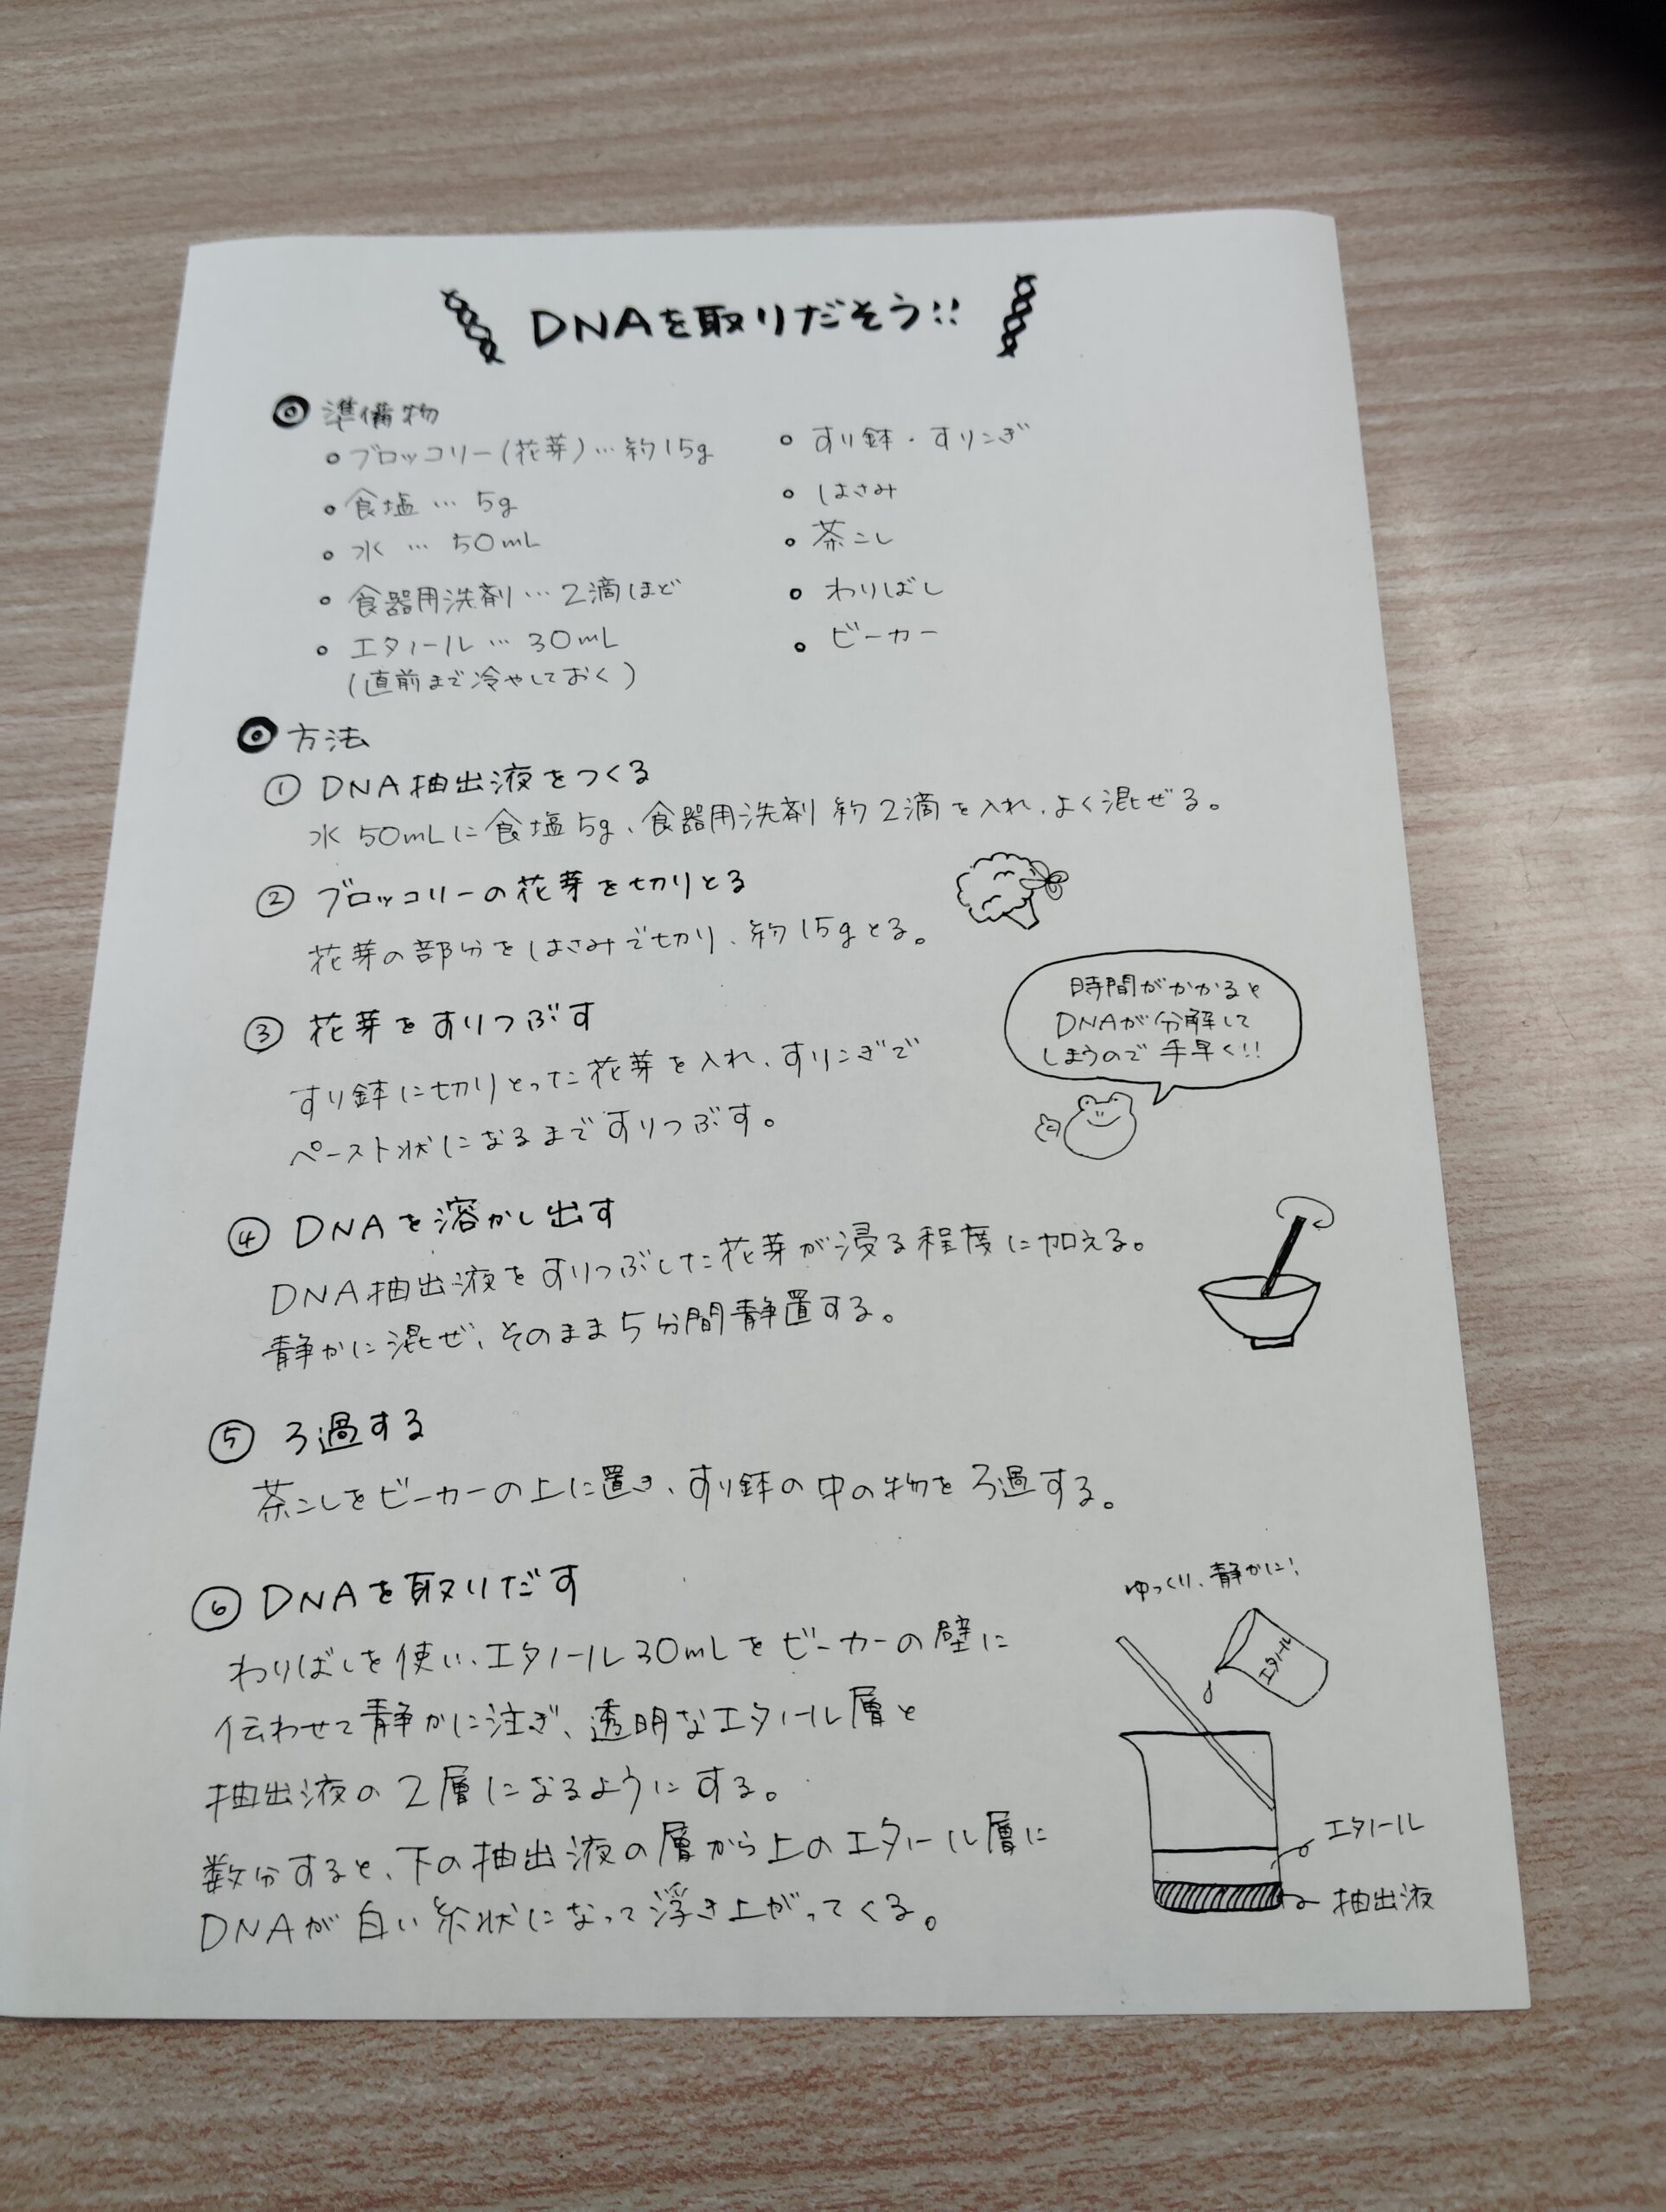 DNAを取りだそう!!
◎ 準備物
• ブロッコリー(花芽)…約15g
• 食塩 … 5g
• 水 … 50mL
• 食器用洗剤 … 2滴ほど
• エタノール … 30mL
(直前まで冷やしておく)
• すり鉢・すりこぎ
• はさみ
• 茶こし
• わりばし
• ビーカー
◎ 方法
① DNA抽出液をつくる
水50mLに食塩5g、食器用洗剤約2滴を入れ、よく混ぜる。
② ブロッコリーの花芽を切りとる
花芽の部分をはさみで切り、約15gとる。
③ 花芽をすりつぶす
すり鉢に切りとった花芽を入れ、すりこぎで
ペースト状になるまですりつぶす。
時間がかかると
DNAが分解して
しまうので手早く!!
④ DNAを溶かし出す
DNA抽出液をすりつぶした花芽が浸る程度に加える。
静かに混ぜ、そのまま5分間静置する。
⑤ ろ過する
茶こしをビーカーの上に置き、すり鉢の中の物をろ過する。
⑥ DNAを取りだす
わりばしを使い、エタノール30mLをビーカーの壁に
伝わせて静かに注ぎ、透明なエタノール層と
抽出液の2層になるようにする。
数分すると、下の抽出液の層から上のエタノール層に
DNAが白い糸状になって浮き上がってくる。
ゆっくり、静かに!
エタノール
エタノール
抽出液